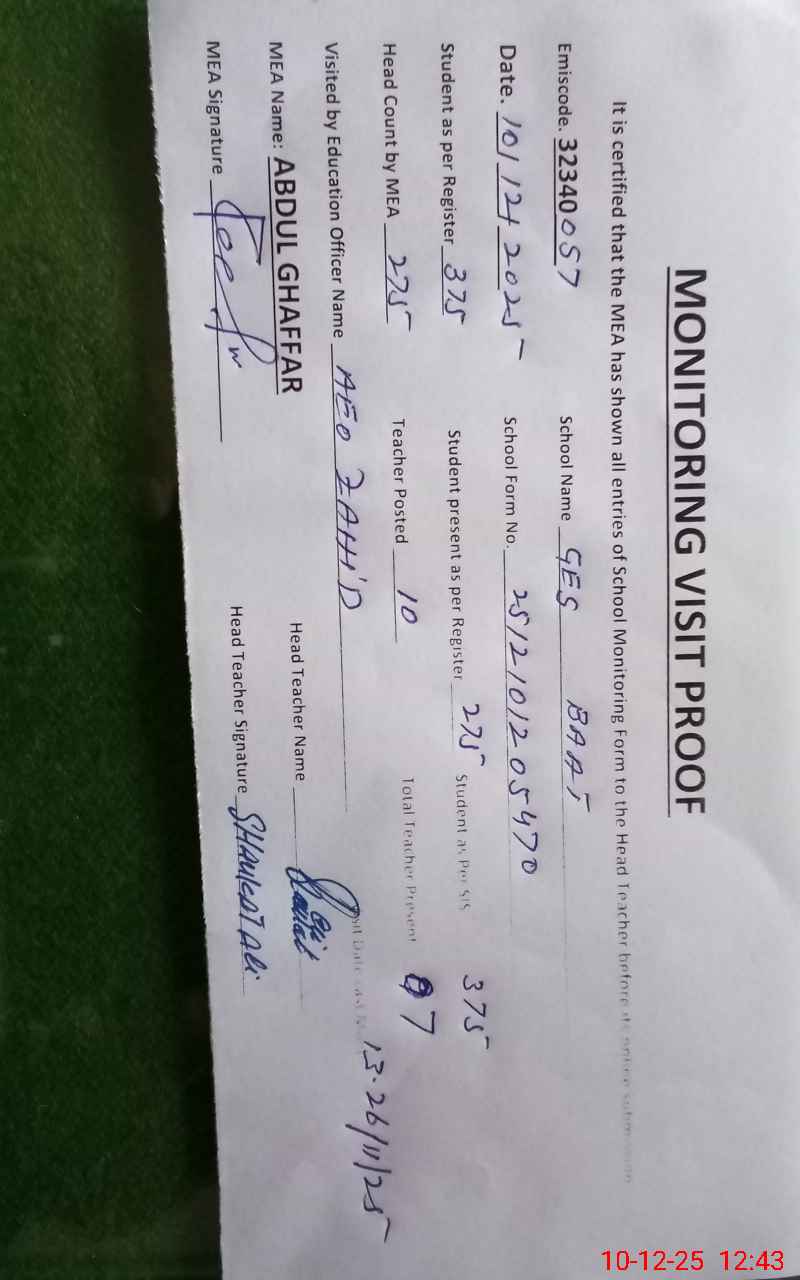 MONITORING VISIT PROOF
It is certified that the MEA has shown all entries of School Monitoring Form to the Head Teacher before its online submission
Emiscode. 32340057 School Name GES BAAT
Date. 10/12/2025 School Form No. 2512101205470
Student as per Register 375 Student present as per Register 275 Student as Per SIS 375
Head Count by MEA 275 Teacher Posted 10 Total Teacher Present 07
Visited by Education Officer Name AEO ZAHID Visit Date 13-26/11/25
MEA Name: ABDUL GHAFFAR Head Teacher Name
MEA Signature Head Teacher Signature SHAUKAT ALI
10-12-25 12:43